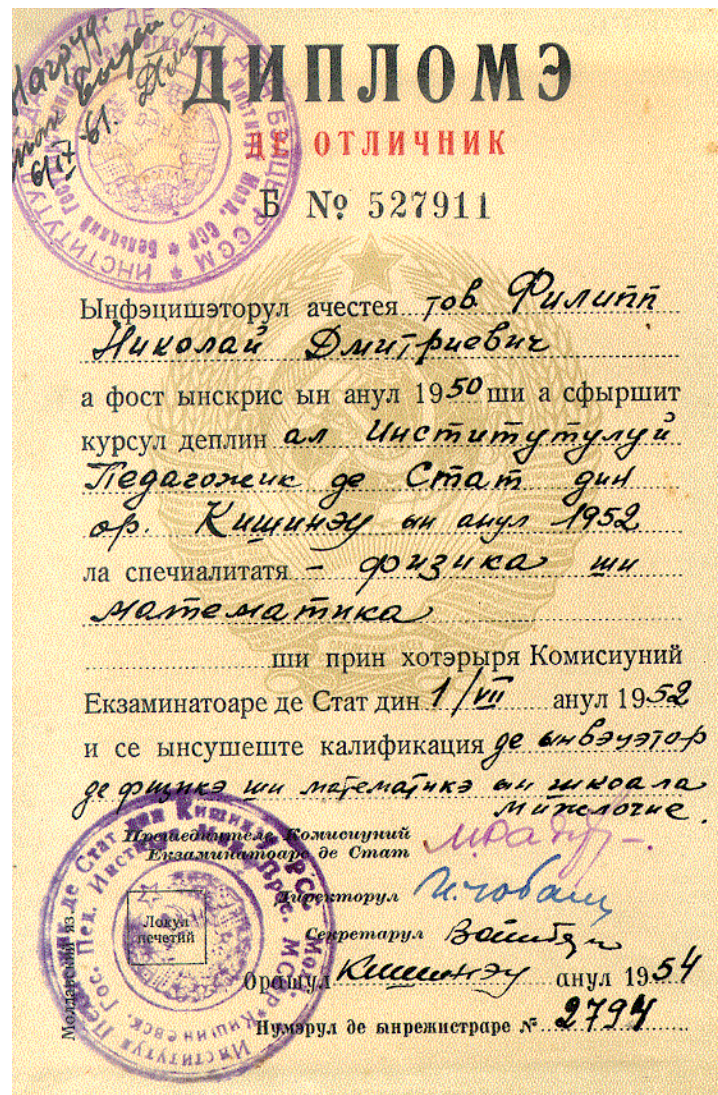 Нагруд.
знак выдан
6/IX 61.
ДИПЛОМЭ
ДЕ ОТЛИЧНИК
Б № 527911
Ынфэцишэторул ачестея тов. Филипп
Николай Дмитриевич
а фост ынскрис ын анул 1950 ши а сфыршит
курсул деплин ал Институтулуй
Педагожик де Стат дин
ор. Кишинэу ын анул 1952
ла спечиалитатя – физика ши
математика
ши прин хотэрыря Комисиуний
Екзаминатоаре де Стат дин 1/VII анул 1952
и се ынсушеште калификация де ынвэцэтор
де физикэ ши математикэ ын шкоала
мижлочие.
Прешединтеле Комисиуний
Екзаминатоаре де Стат
Директорул И. Чобану
Секретарул
Локул
печетий
Орашул Кишинэу анул 1954
Нумэрул де ынрежистраре № 2794